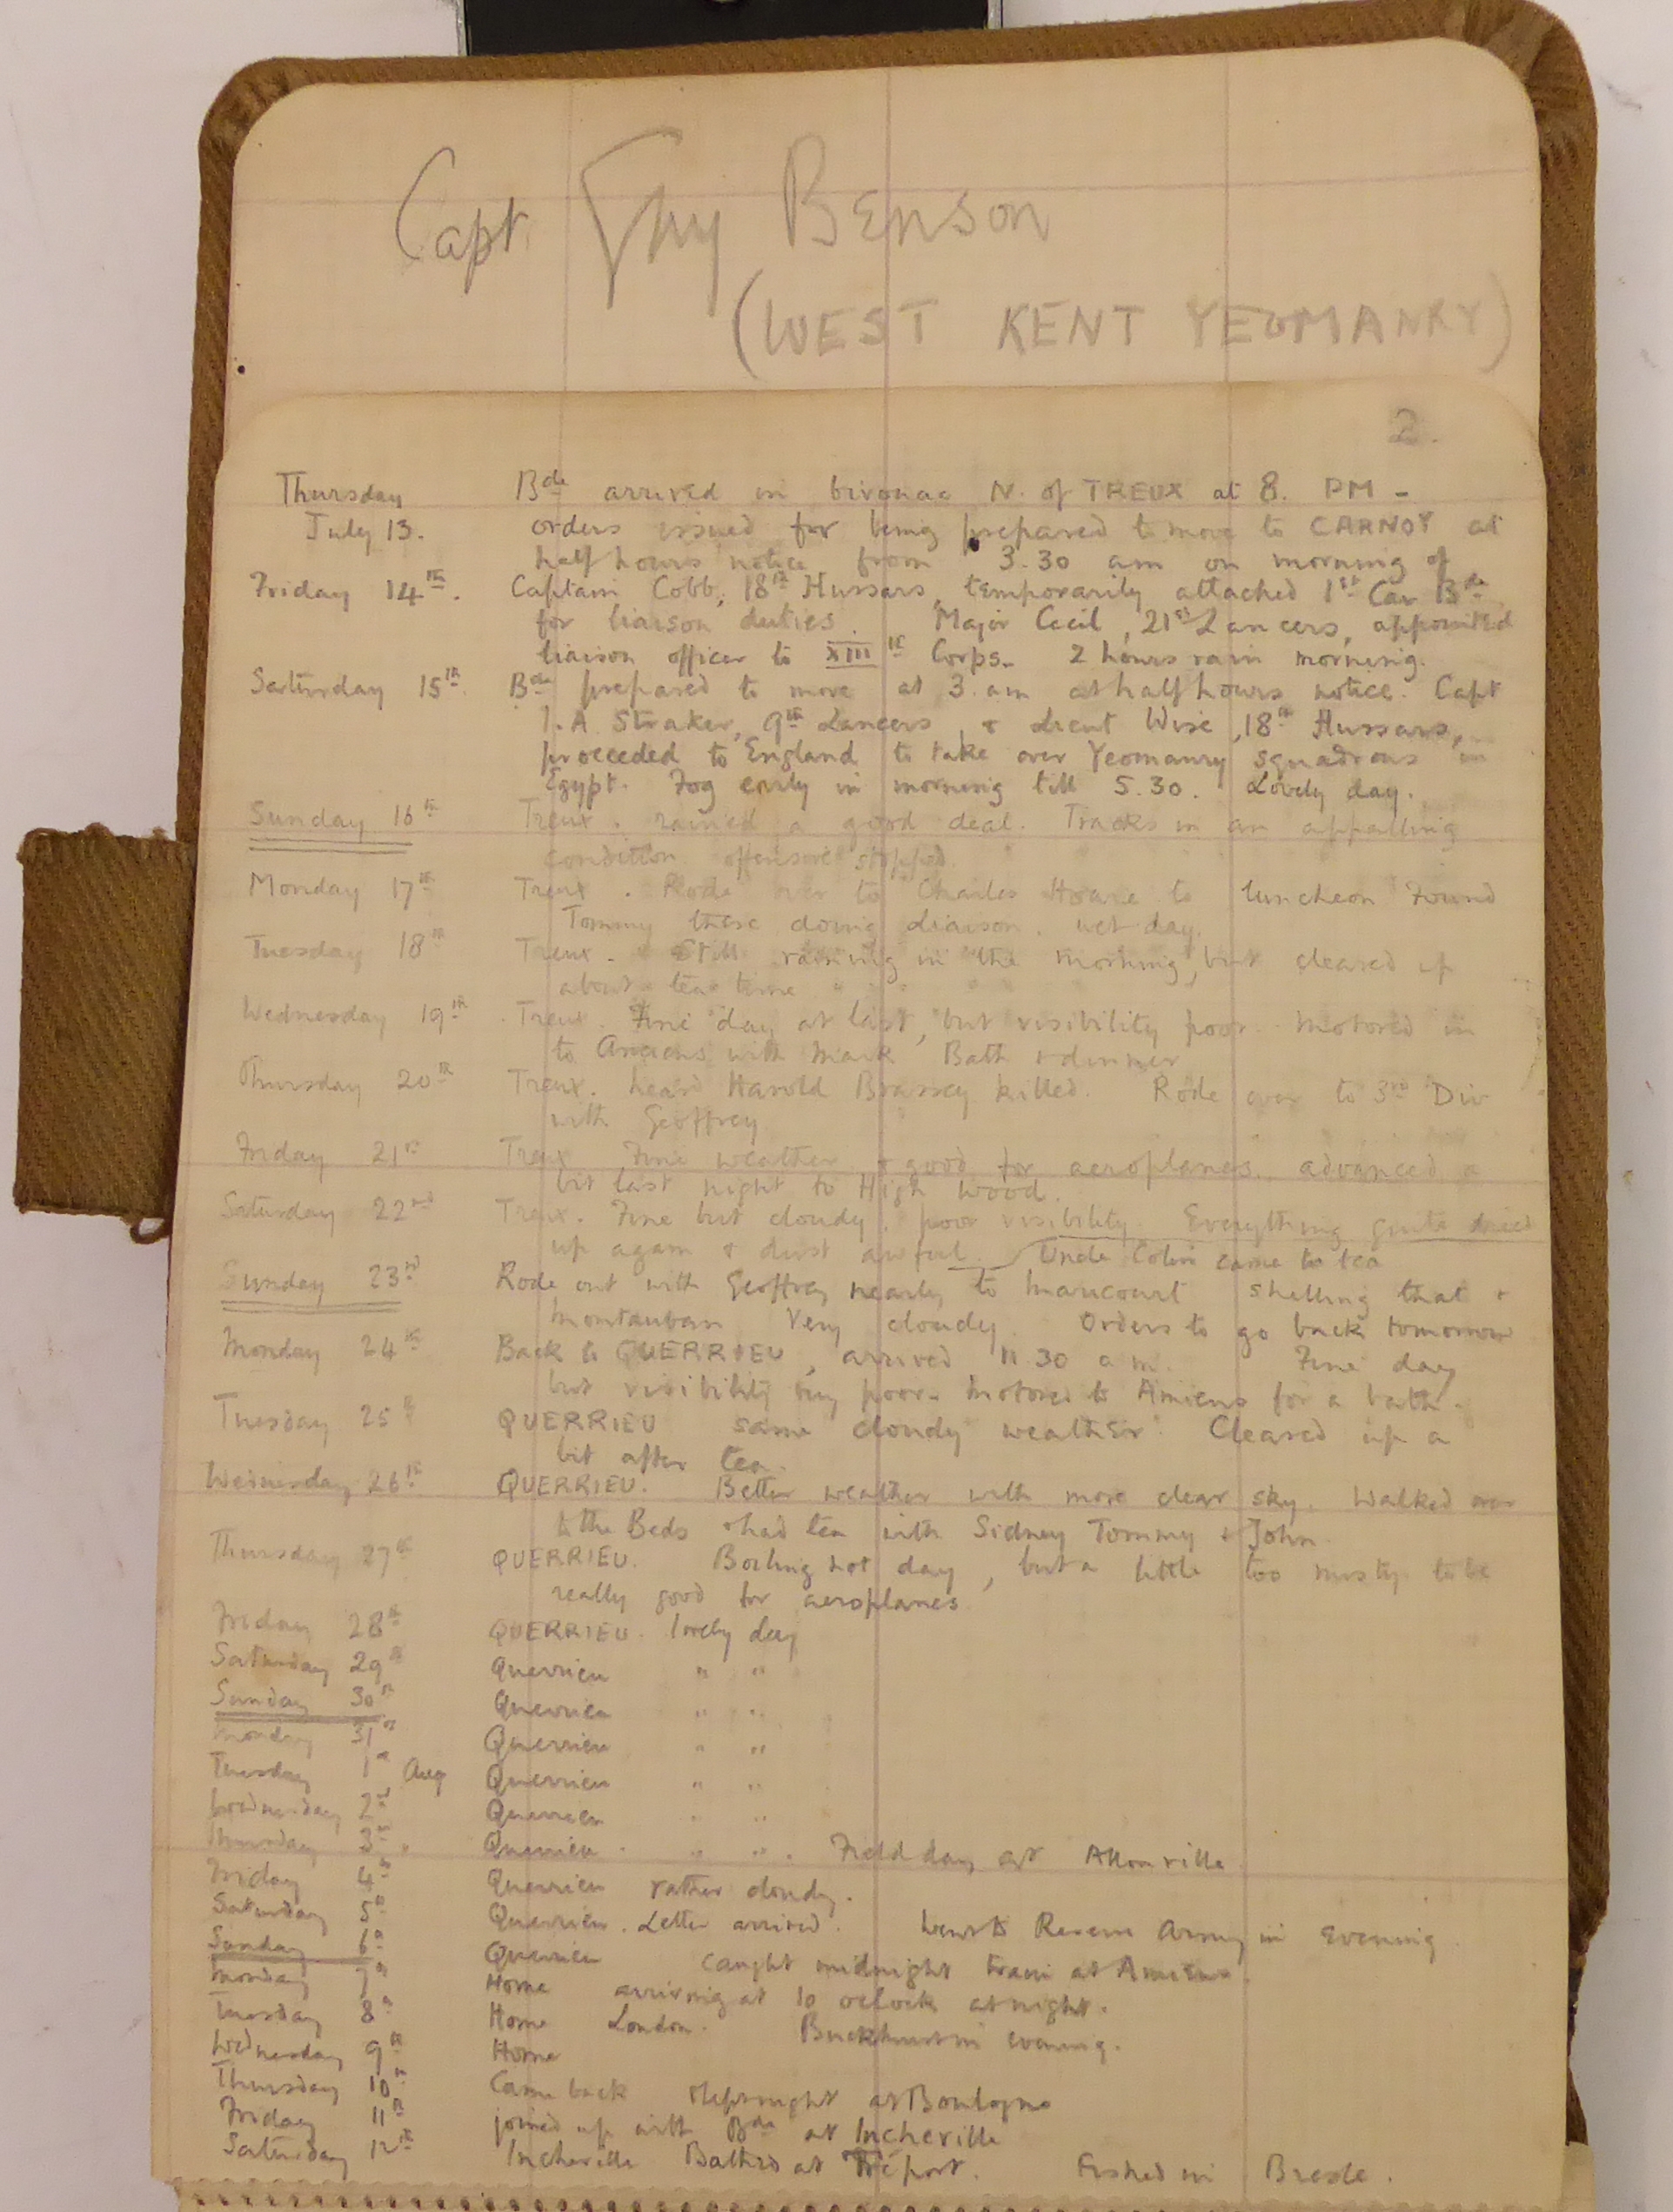 Capt Guy Benson
(WEST KENT YEOMANRY)
2.
Thursday Bde arrived in bivouac N. of TREUX at 8. PM -
July 13. orders issued for being prepared to move to CARNOY at
half hours notice from 3.30 am on morning of
Friday 14th. Captain Cobb, 18th Hussars, temporarily attached 1st Cav Bde
for liaison duties. Major Cecil, 21st Lancers, appointed
liaison officer to XIIIth Corps. 2 hours rain morning.
Saturday 15th. Bde prepared to move at 3. am at half hours notice. Capt
I. A. Straker, 9th Lancers, & Lieut Wise, 18th Hussars,
proceeded to England to take over Yeomanry squadrons in
Egypt. Fog early in morning till 5.30. Lovely day.
Sunday 16th Treux. rained a good deal. Tracks in an appalling
condition. offensive stopped.
Monday 17th Treux. Rode over to Charles Hoare to luncheon Found
Tommy there doing liaison. wet day.
Tuesday 18th Treux. Still raining in the morning, but cleared up
about tea time
Wednesday 19th Treux. Fine day at last, but visibility poor. Motored in
to Amiens with Mark Bath & dinner
Thursday 20th Treux. heard Harold Brassey killed. Rode over to 3rd Div
with Geoffrey
Friday 21st Treux Fine weather & good for aeroplanes. advanced a
bit last night to High Wood.
Saturday 22nd Treux. Fine but cloudy, poor visibility. Everything quite dried
up again & dust awful. Uncle Colin came to tea
Sunday 23rd Rode out with Geoffrey nearly to Maricourt shelling that &
Montauban Very cloudy. Orders to go back tomorrow
Monday 24th Back to QUERRIEU, arrived 11.30 a.m. Fine day
but visibility very poor. Motored to Amiens for a bath.
Tuesday 25th QUERRIEU same cloudy weather. Cleared up a
bit after tea.
Wednesday 26th QUERRIEU. Better weather with more clear sky. Walked over
to the Beds & had tea with Sidney Tommy & John
Thursday 27th QUERRIEU. Boiling hot day, but a little too misty to be
really good for aeroplanes
Friday 28th QUERRIEU. lovely day
Saturday 29th Querrieu " "
Sunday 30th Querrieu " "
Monday 31st Querrieu " "
Tuesday 1st Aug Querrieu " "
Wednesday 2nd Querrieu " "
Thursday 3rd. Querrieu. " ". Field day at Allonville
Friday 4th Querrieu rather cloudy.
Saturday 5th Querrieu. Letter arrived. Went to Reserve Army in evening
Sunday 6th Querrieu caught midnight train at Amiens.
Monday 7th Home arriving at 10 oclock at night.
Tuesday 8th Home London. Buckhurst in evening.
Wednesday 9th Home
Thursday 10th Came back slept night at Boulogne
Friday 11th joined up with Bde at Incheville
Saturday 12th Incheville Bathed at Tréport. Fished in Bresle.